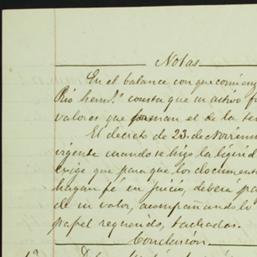 Notas
En el balance con que comienz
Rio herm.ˢ consta que su activo f
valores que forman el de la te
El decreto de 23 de Noviem
vigente cuando se hizo la liquid
exige que para que los document
hagan fé en juicio, deberá pa
de su valor, acompañando lo
papel requerido, tachados.
Conclusion